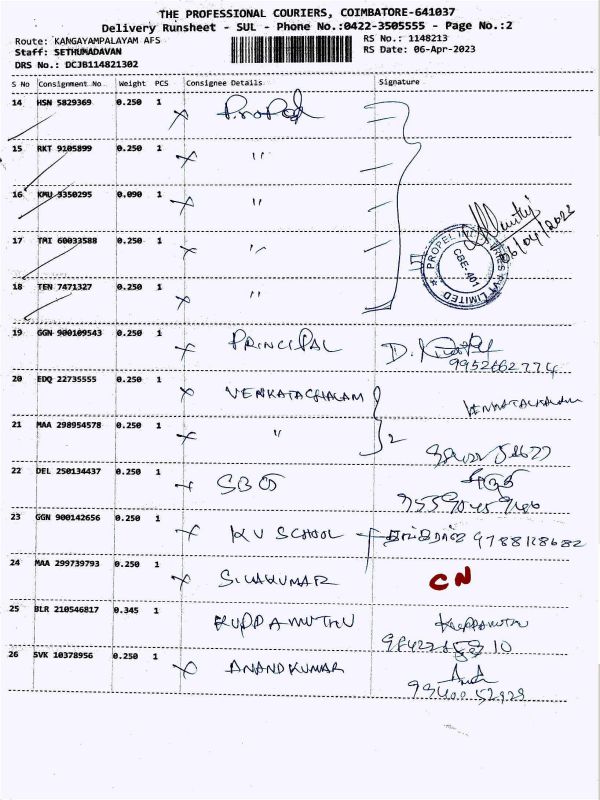 THE PROFESSIONAL COURIERS, COIMBATORE-641037
Delivery Runsheet - SUL - Phone No.:0422-3505555 - Page No.:2
Route: KANGAYAMPALAYAM AFS
RS No.: 1148213
Staff: SETHUMADAVAN
RS Date: 06-Apr-2023
DRS No.: DCJB114821302
S No Consignment No Weight PCS Consignee Details Signature
14 HSN 5829369 0.250 1 Propel
15 RKT 9105899 0.250 1 "
16 KMU 3350295 0.090 1 "
17 TMI 60033588 0.250 1 "
PROPEL CBE-401 PVT LIMITED
06/04/2023
18 TEN 7471327 0.250 1 "
19 GGN 900109543 0.250 1 PRINCIPAL
9952662774
20 EDQ 22735555 0.250 1 VENKATACHALAM
21 MAA 298954578 0.250 1 " 2
22 DEL 250134437 0.250 1
23 GGN 900142656 0.250 1 KV SCHOOL 9788128682
24 MAA 299739793 0.250 1 SIVAKUMAR CN
25 BLR 210546817 0.345 1 KUPPAMUTHU Kuppamuthu
26 SVK 10378956 0.250 1 ANANDKUMAR